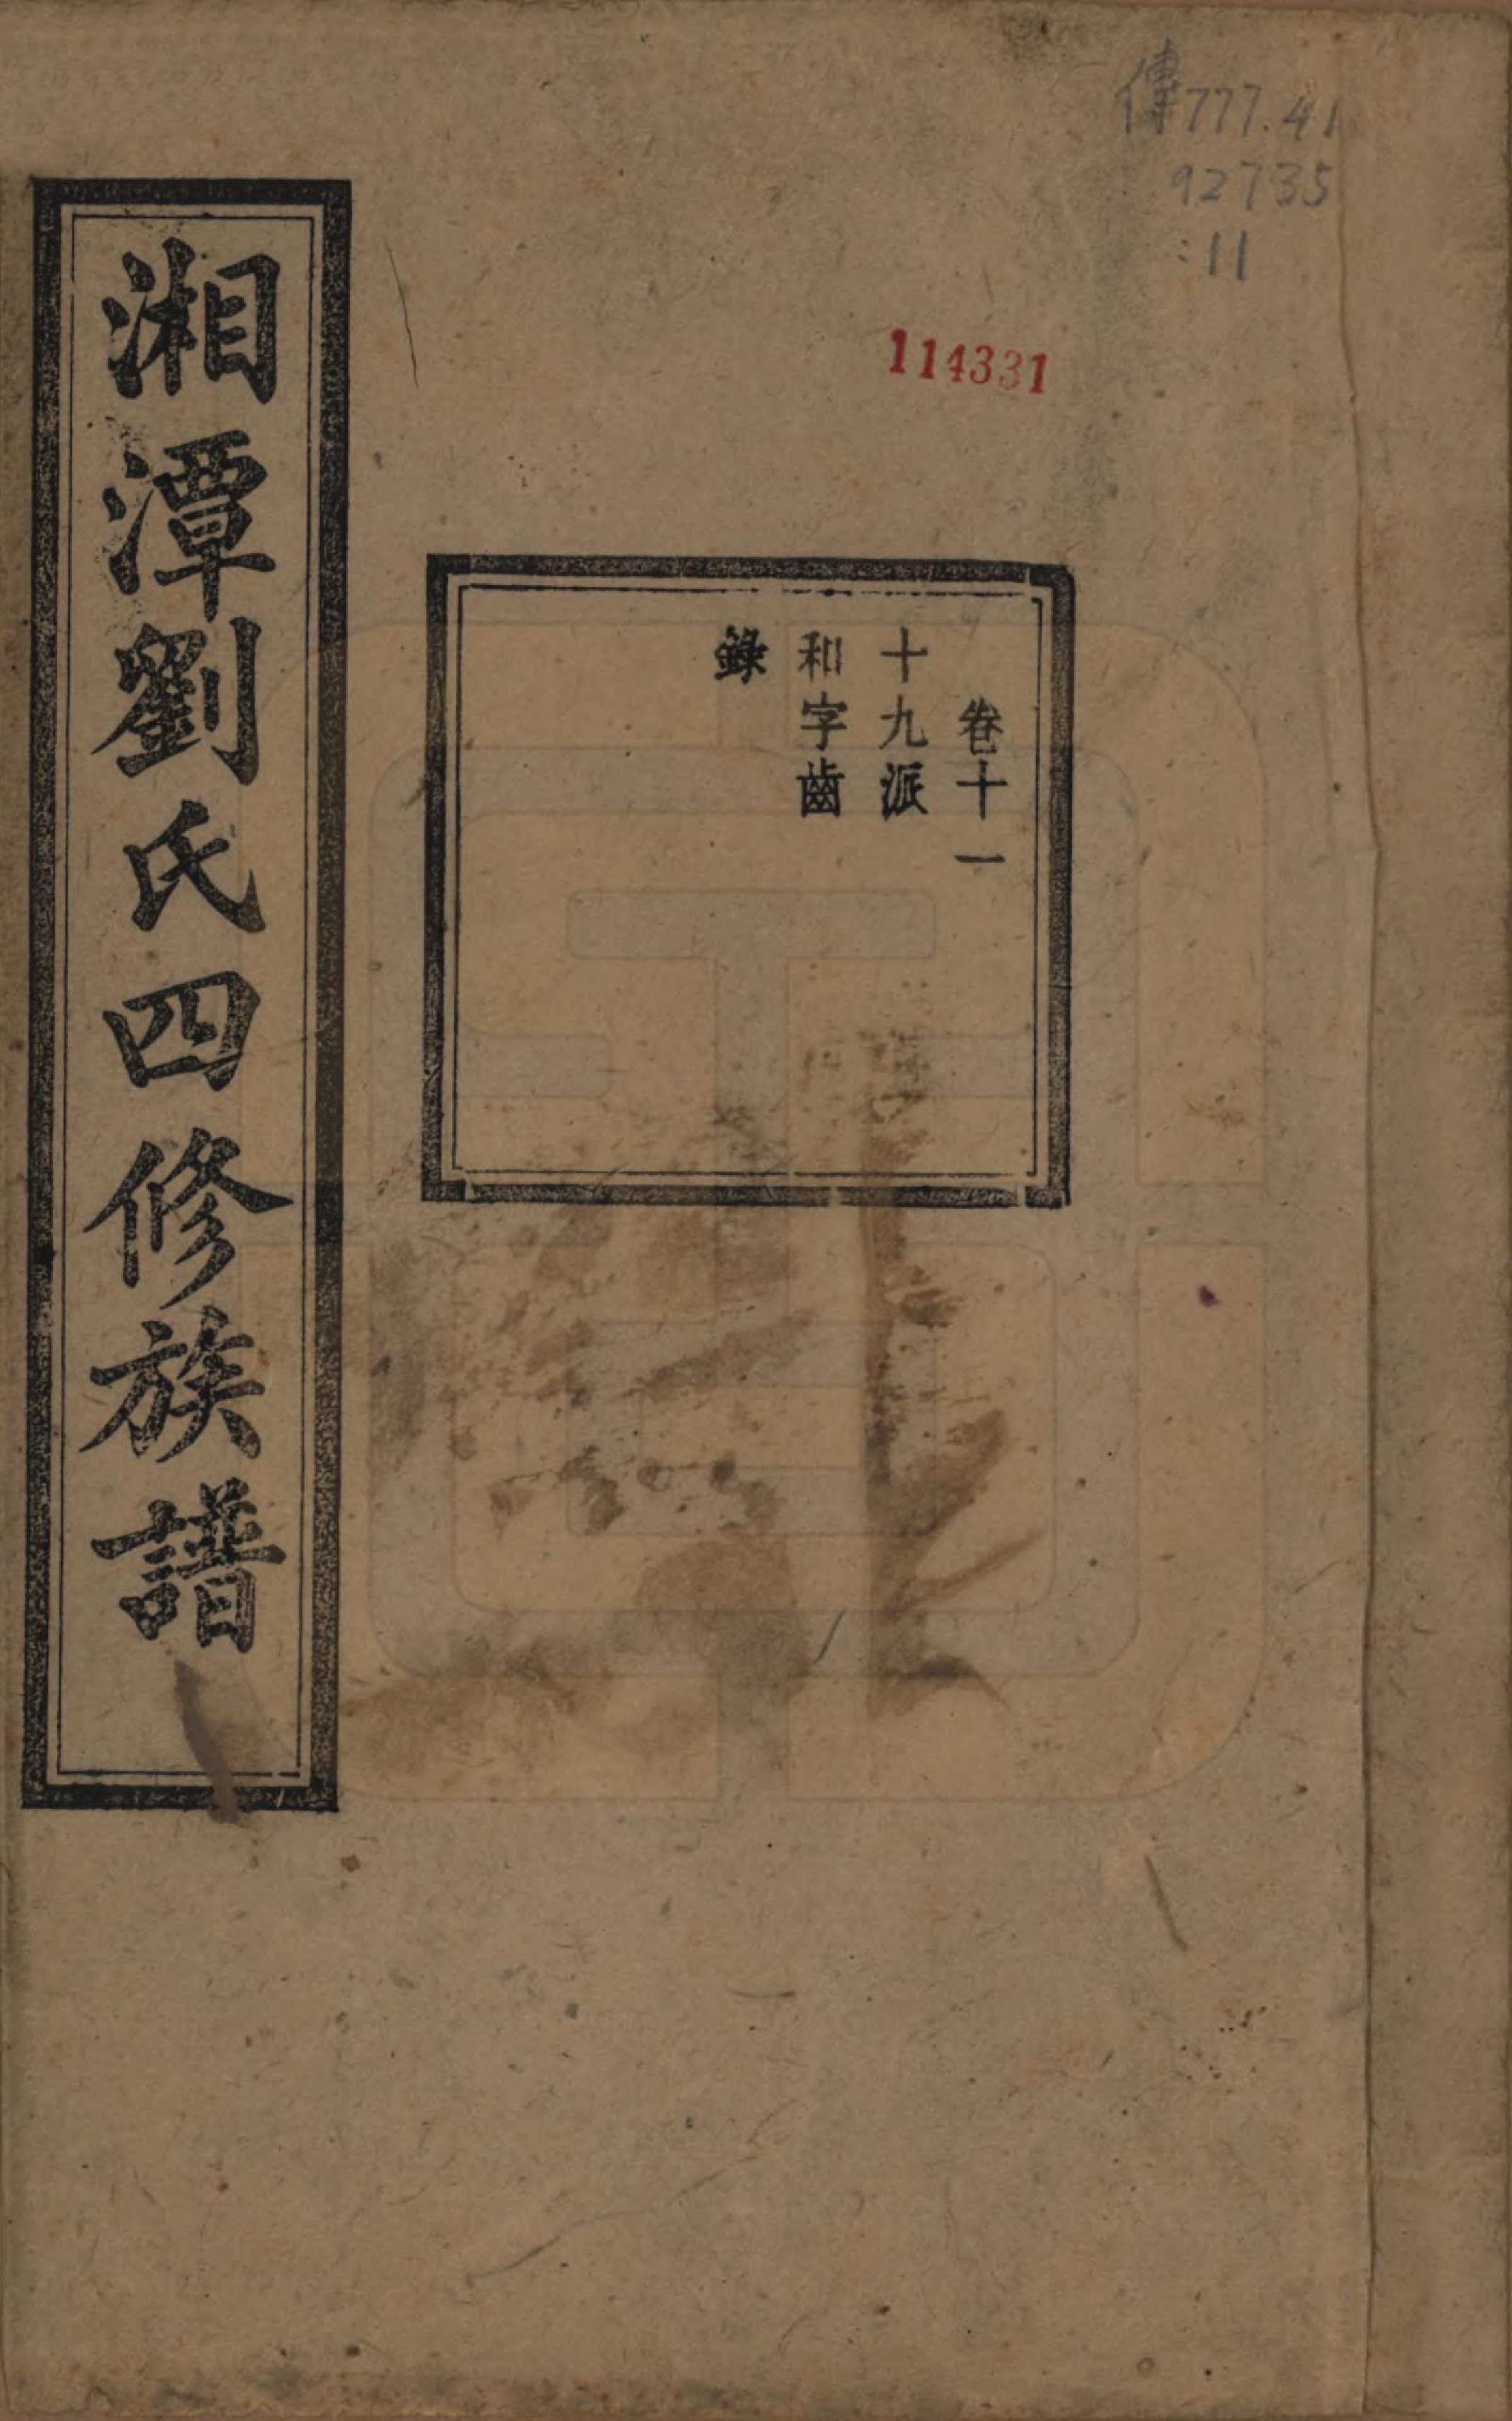 傳777.41
92735
:11
114331
卷十一
十九派
和字齒
錄
湘潭劉氏四修族譜